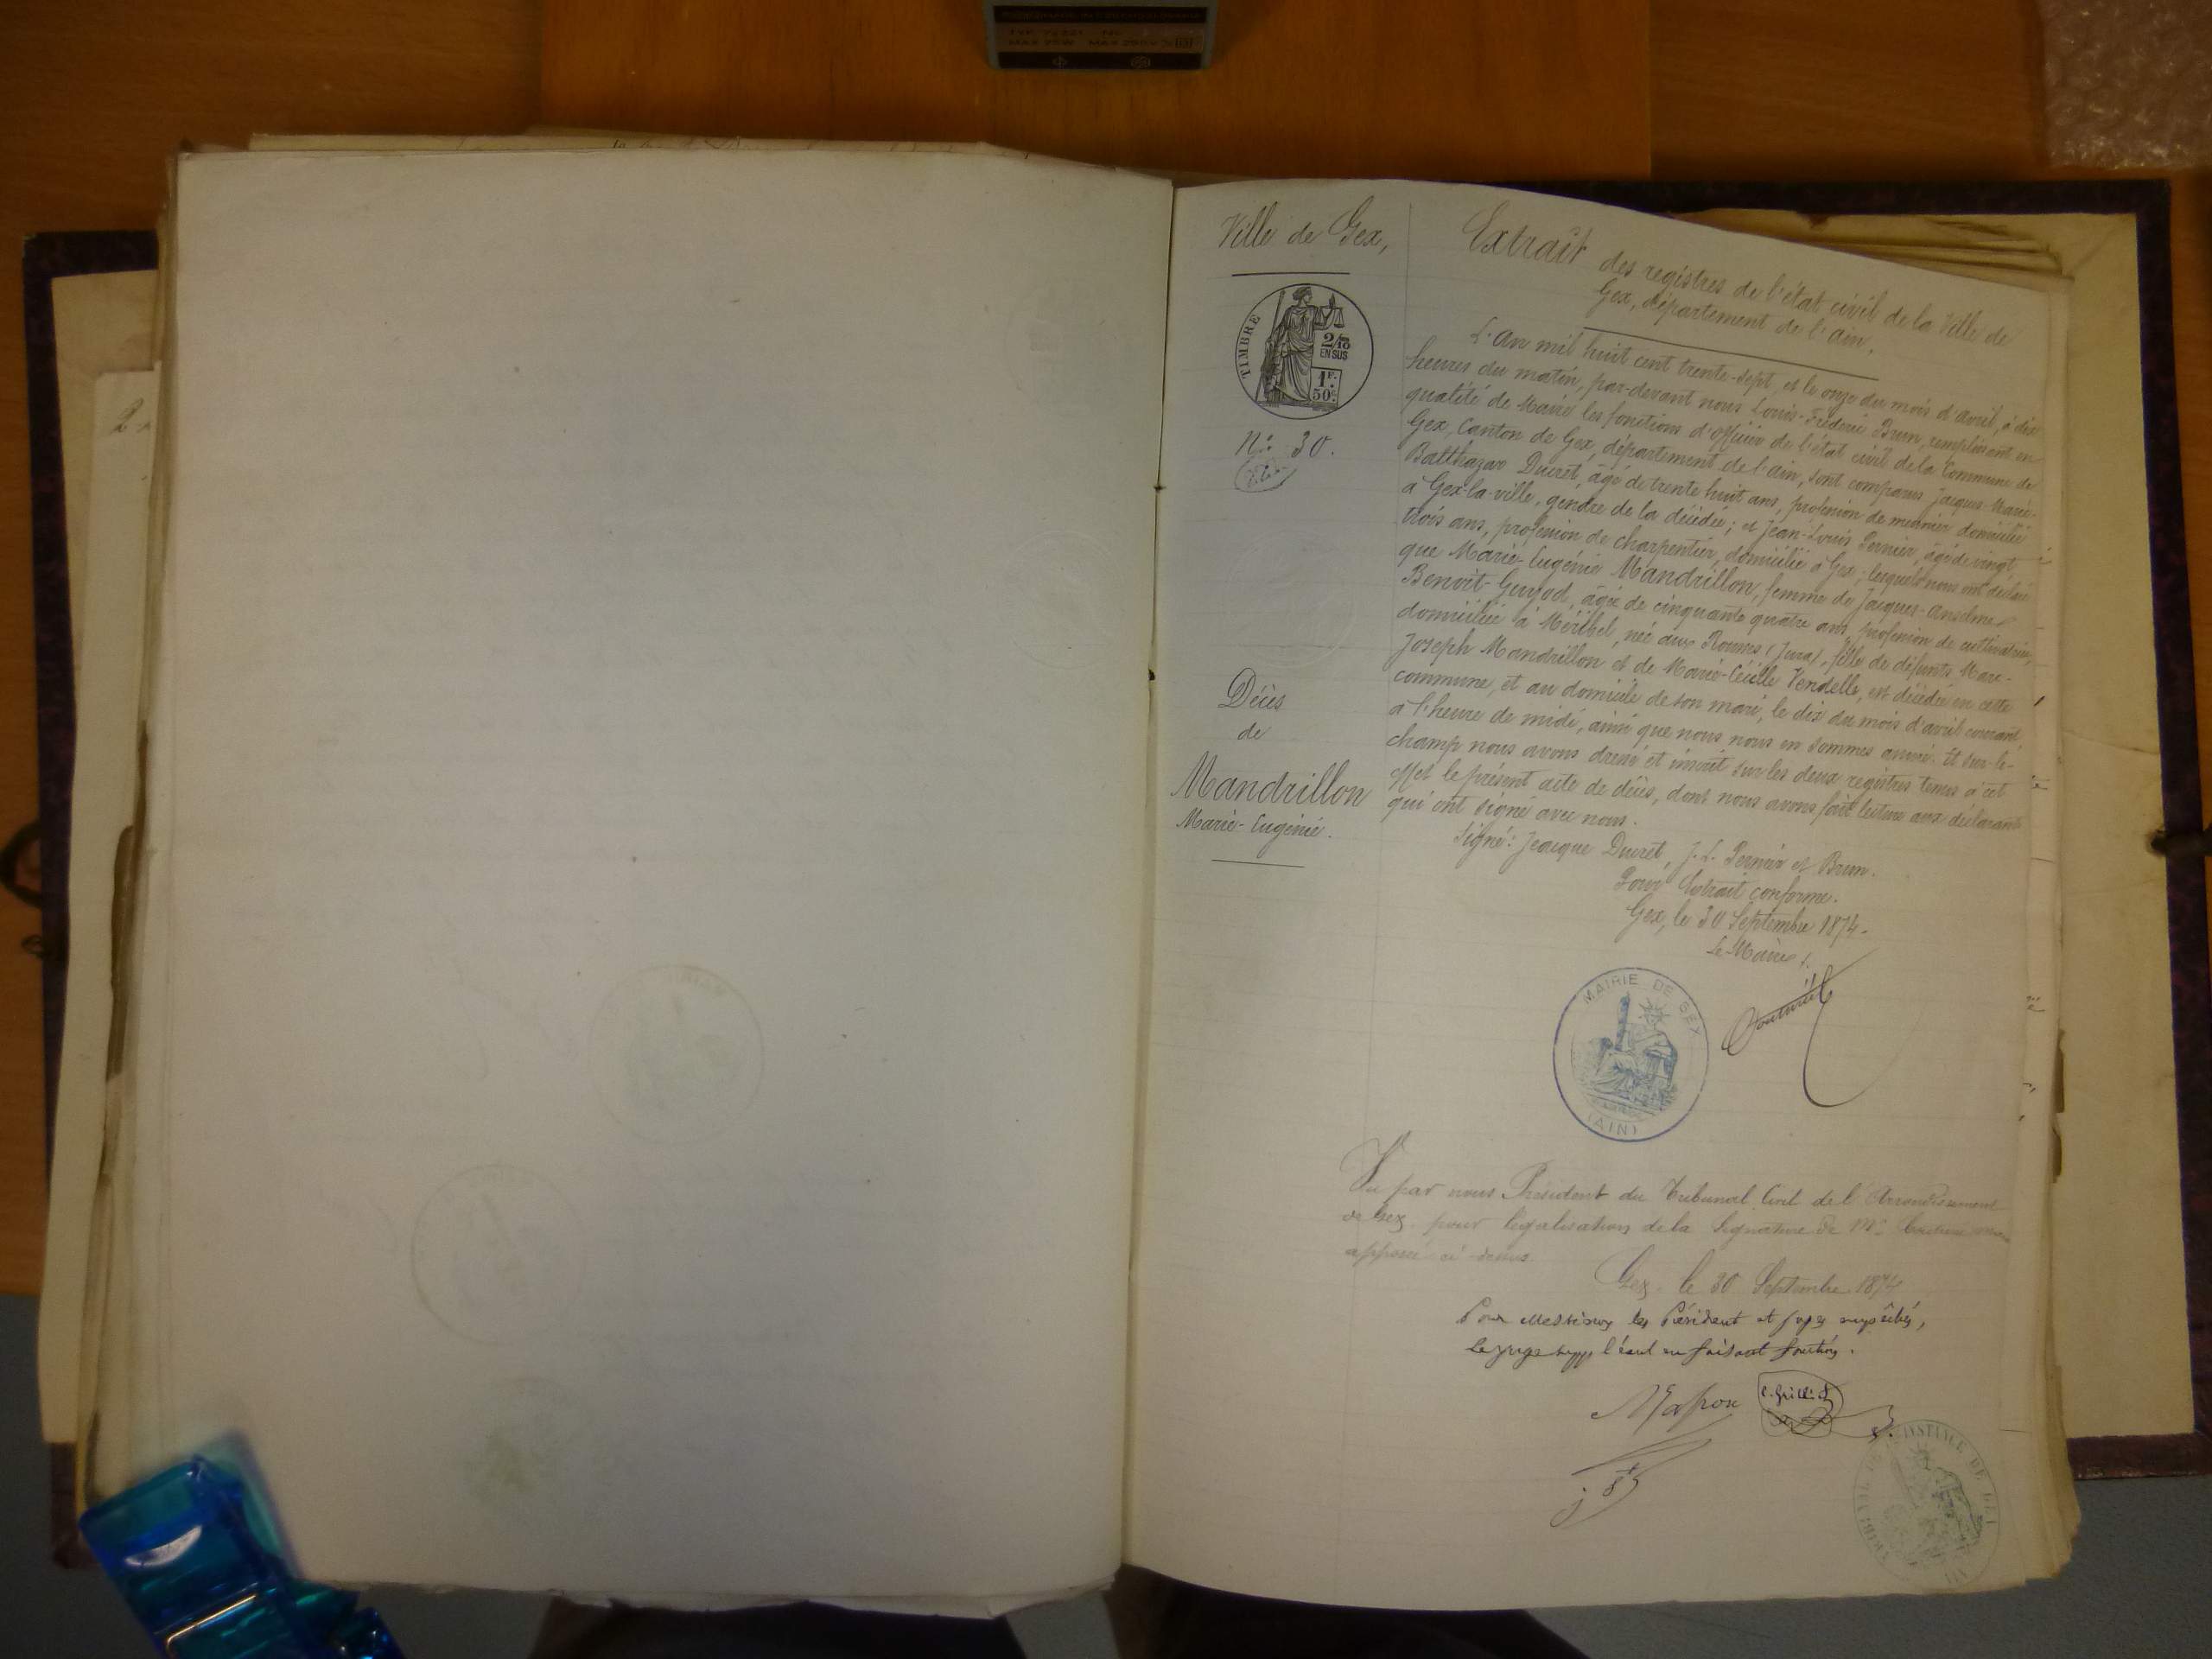 Ville de Gex,
TIMBRE
2/10
EN SUS
1F.
50c.
No. 30.
Décès
de
Mandrillon
Marie-Eugénie.
Extrait
des registres de l'état civil de la Ville de
Gex, département de l'ain.
L'An mil huit cent trente-sept, et le onze du mois d'avril, à dix
heures du matin, par-devant nous Louis-Fréderic Brun, remplissant en
qualité de Maire les fonctions d'officier de l'état civil de la Commune de
Gex, Canton de Gex, département de l'ain, sont comparus Jacques-Marie-
Balthazar Ducret, âgé de trente huit ans, profession de meunier domicilié
à Gex-la-ville, gendre de la décédée; et Jean-Louis Pernier, âgé de vingt
trois ans, profession de charpentier, domicilié à Gex; lesquels nous ont déclaré
que Marie-Eugénie Mandrillon, femme de Jacques-Anselme
Benoit-Guyod, âgée de cinquante quatre ans, profession de cultivatrice,
domiciliée à Méribel, née aux Rousses (Jura), fille de défunts Marc-
Joseph Mandrillon et de Marie-Cécille Vendelle, est décédée en cette
commune, et au domicile de son mari, le dix du mois d'avril courant
à l'heure de midi, ainsi que nous nous en sommes assuré. Et sur-le-
champ nous avons dressé et inscrit sur les deux registres tenus à cet
effet le présent acte de décès, dont nous avons fait lecture aux déclarants
qui ont signé avec nous.
Signé: Jacque Ducret, J. L. Pernier et Brun.
Pour Extrait conforme.
Gex, le 30 Septembre 1874.
Le Maire,
MAIRIE DE GEX
(AIN)
Vu par nous Président du Tribunal Civil de l'Arrondissement
de Gex, pour légalisation de la Signature de Mr
apposée ci-dessus
Gex, le 30 Septembre 1874
Pour Messieurs les Président et juges empêchés,
le juge suppléant en faisant fonctions.
TRIBUNAL DE INSTANCE DE GEX